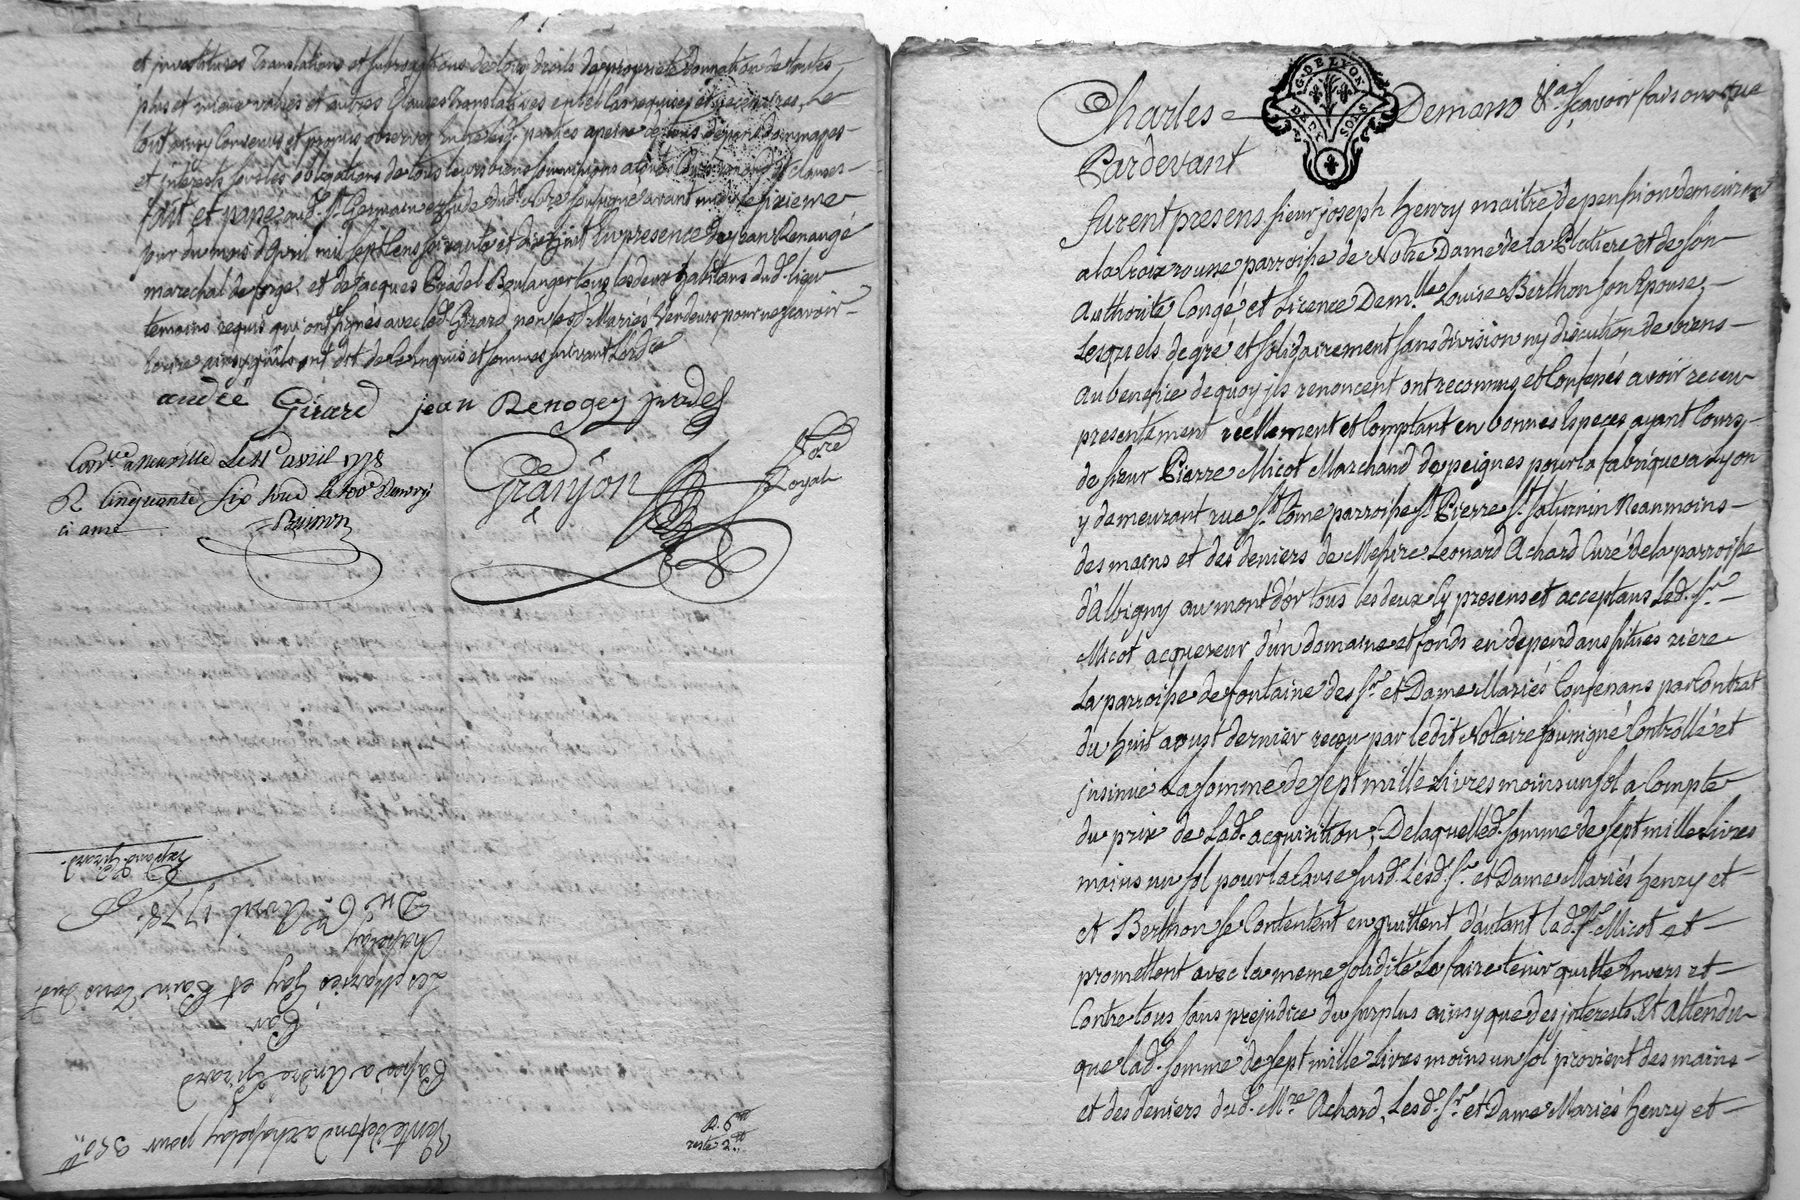 et investitures Translations et subrogations de tous droits de proprieté donnation de toutes
plus et mieux values et autres Clauses Translatives en tel cas requises et necessaires, Le
tout ainsy Convenus et promis observer entre lesd. parties a peine de tous depens dommages
et interests sous les obligations de tous leurs biens soumissions et clauses
fait et passé aud. St. Germain etude dud. No.re soussigné avant midy Le sixieme
jour du mois d'Avril mil sept Cens soixante et dix huit En presence de jean Renaugé
marechal de forge, et de Jacques Pradel Boulanger tous les deux habitans dud. lieu
temoins requis qui ont signés avec led. Girard, non lesd. Mariés Vendeurs pour ne sçavoir
ecrire ainsy qu'ils ont dit de ce enquis et sommés suivant L'ord.ce
andré Girard jean Renogey pradel
Con.lé a Neuville Le 11 avril 1778
R cinquante six sous
Granjon
No.re
Royal
Vente de fond a Chapelay pour 350.tt
Passé a André Girard
Par
Les Mariés Gay et Bain Tous Dud.
Chapelay
Du 6.e Avril 1778.
Exped. Girard.
R. 8.tt
reste 2.tt
Charles = Demasso &.a sçavoir faisons que
G. DE LYON
DEUX SOLS
Pardevant
furent presens sieur joseph henry maitre de pension demeurant
a la Croix rousse parroisse de Notre Dame de la Platiere et de son
Authorité Congé, et Licence Dem.lle Louise Berthon son Epouse,
Lesquels de gré et solidairement sans division ny discution de biens
au benefice de quoy jls renoncent ont reconnus et Confessés avoir receu
presentement reellement et Comptant en bonnes Especes ayant Cours
de sieur Pierre Micot Marchand de peignes pour la fabrique a Lyon
y demeurant rue St. Côme parroisse St. Pierre St. saturnin Neanmoins
des mains et des deniers de Messire Leonard Achard Curé de la parroisse
d'Albigny au mont d'or tous les deux jcy presens et acceptans Led. Sr.
Micot acquereur d'un domaine et fonds en dependans situés riere
La parroisse de fontaine des Sr. et Dame Mariés Confessans par Contrat
du huit aoust dernier reçeu par ledit Notaire soussigné Controllé et
jnsinué La somme de sept mille Livres moins un sol a Compte
du prix de Lad. acquisition; De laquelle d. somme de sept mille Livres
moins un sol pour la Cause susd. Lesd. Sr. et Dame Mariés henry et
et Berthon se Contentent en quittent d'autant led. Sr. Micot et
promettent avec la meme solidité Le faire tenir quitte Envers et
Contre tous sans prejudice du surplus ainsy que des jnterests Et Attendu
que lad. somme de sept mille Livres moins un sol provient des mains
et des deniers dud. M.re Achard, Lesd. Sr. et Dame Mariés henry et